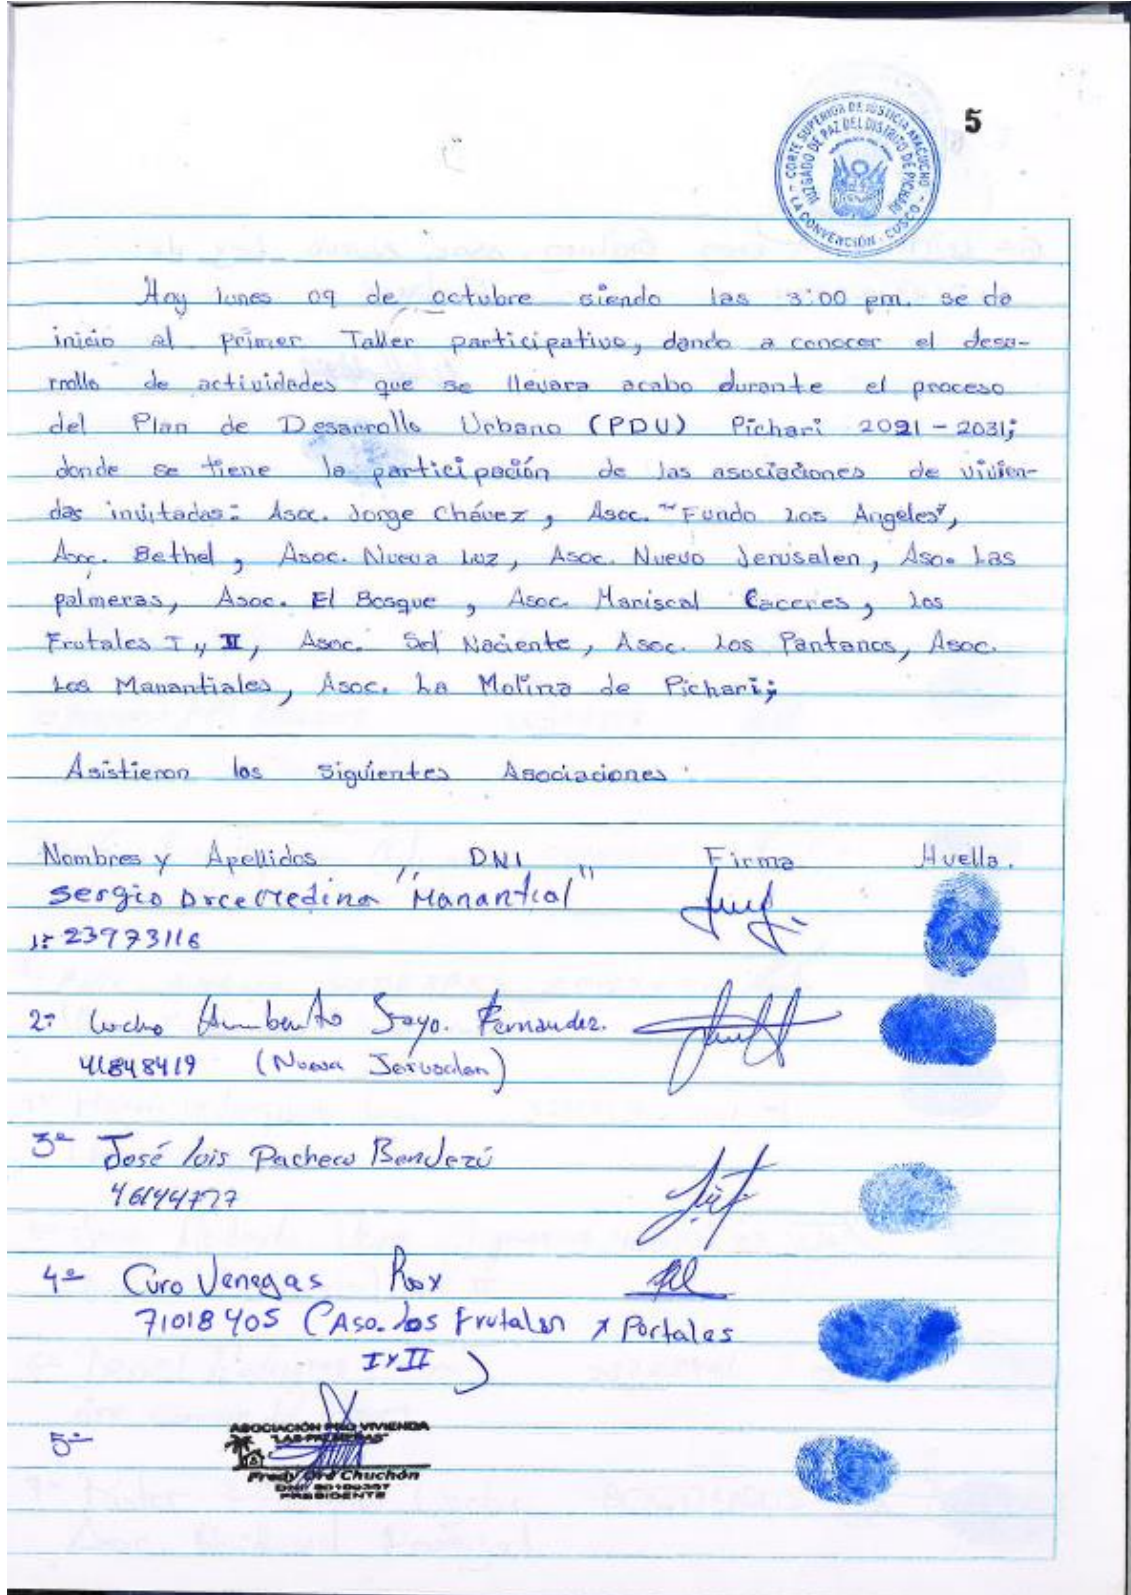 5
CORTE SUPERIOR DE JUSTICIA AYACUCHO
JUZGADO DE PAZ DEL DISTRITO DE PICHARI
LA CONVENCIÓN - CUSCO
Hoy lunes 09 de octubre siendo las 3:00 pm. se da
inicio al primer Taller participativo, dando a conocer el desa-
rrollo de actividades que se llevara acabo durante el proceso
del Plan de Desarrollo Urbano (PDU) Pichari 2021 - 2031;
donde se tiene la participación de las asociaciones de vivien-
das invitadas: Asoc. Jorge Chávez, Asoc. "Fundo Los Angeles",
Asoc. Bethel, Asoc. Nueva Luz, Asoc. Nuevo Jerusalen, Aso. Las
palmeras, Asoc. El Bosque, Asoc. Mariscal Caceres, Los
Frutales I y II, Asoc. Sol Naciente, Asoc. Los Pantanos, Asoc.
Los Manantiales, Asoc. La Molina de Pichari;
Asistieron las siguientes Asociaciones:
Nombres y Apellidos DNI Firma Huella.
Sergio Arce Medina "Manantial"
1: 23973116
2- Lucho Humberto Fernandez.
41848419 (Nueva Jerusalen)
3º José Luis Pacheco Bendezú
46144777
4º Curo Venegas Rox
71018405 (Aso. Los Frutales y Portales
I y II)
5º
ASOCIACIÓN PRO VIVIENDA
"LAS PALMERAS"
Fredy Oré Chuchón
DNI
PRESIDENTE